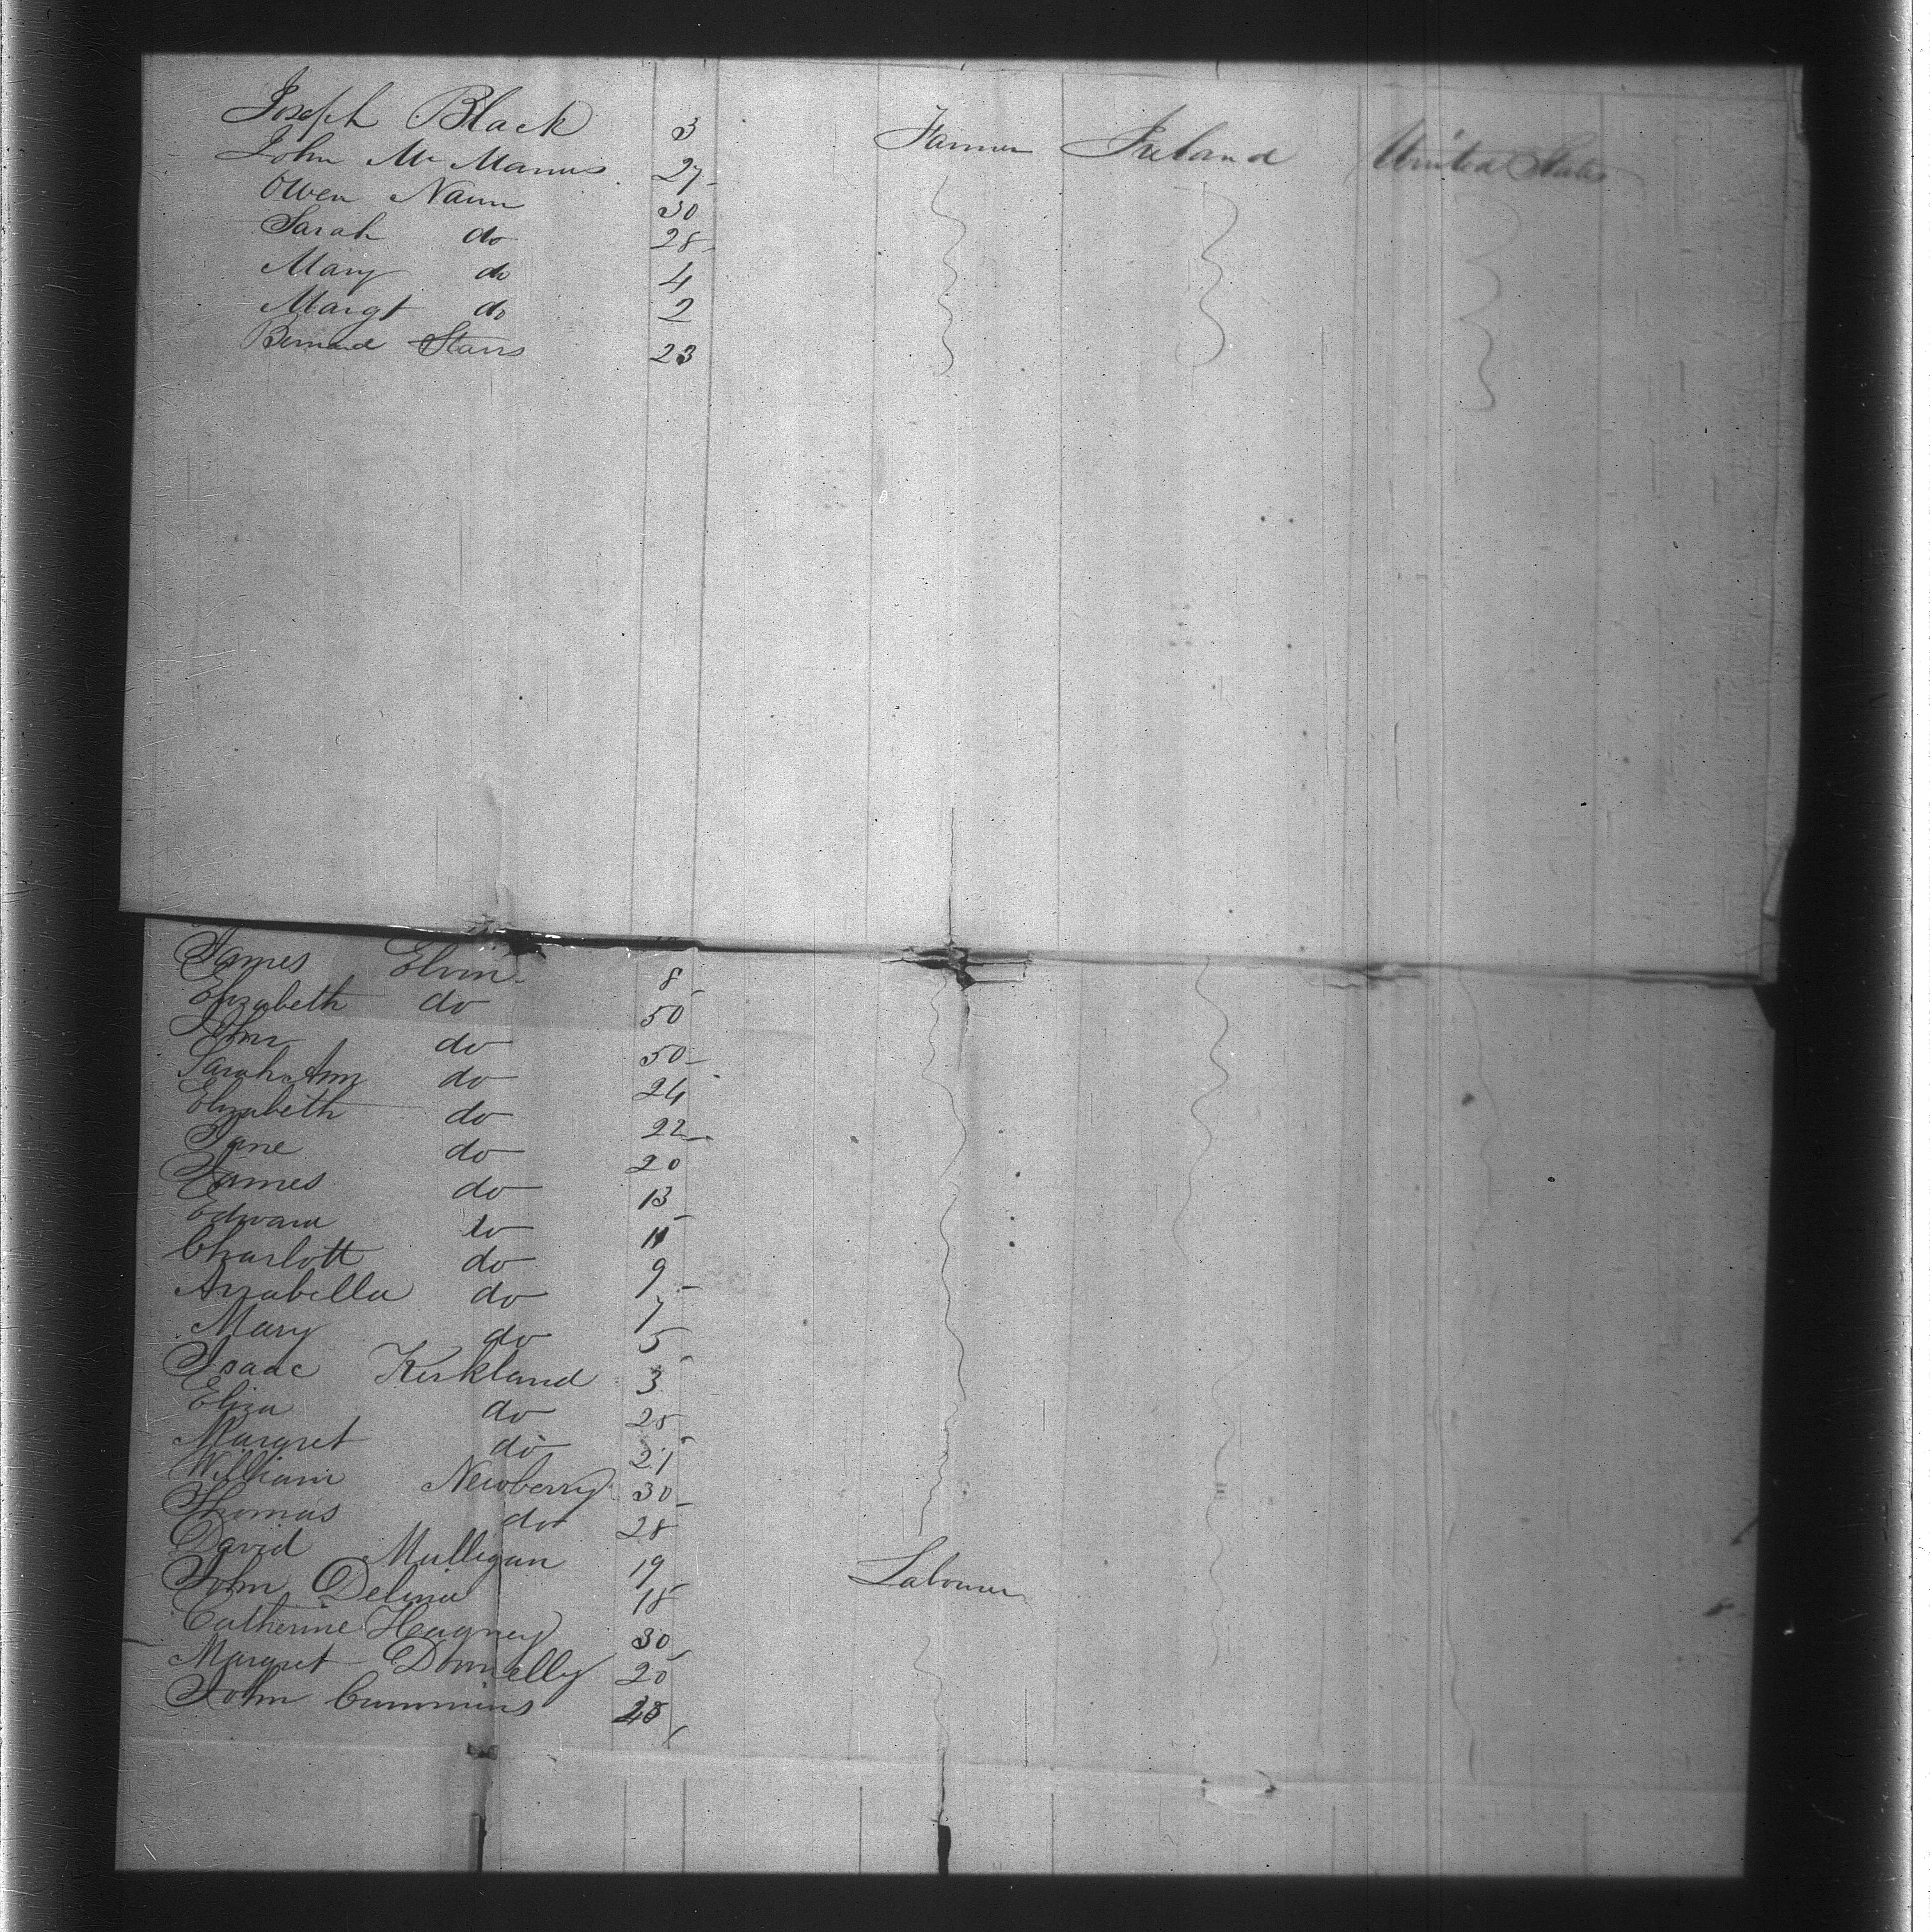 Joseph Black 3
John Mc Manus 27 Farmer Ireland United States
Owen Naun 30
Sarah do 28
Mary do 4
Margt do 2
Bernard Starrs 23
James Elvin 8
Elizabeth do 50
John do 50
Sarah Ann do 24
Elizabeth do 22
Jane do 20
James do 13
Edward do 11
Charlott do 9
Arrabella do 7
Mary do 5
Isaac Kirkland 3
Eliza do 25
Margret do 21
William Newberry 30
Thomas do 28
David Mulligan 19 Labourer
John 18
Catherine Hagney 30
Margret Donnelly 20
John Cummins